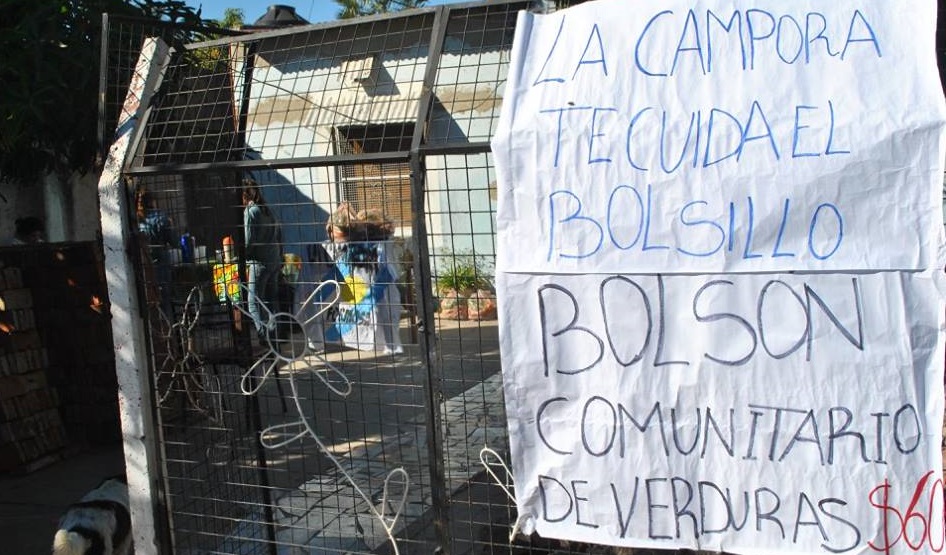 LA CAMPORA
TE CUIDA EL
BOLSILLO
BOLSON
COMUNITARIO
DE VERDURAS $60